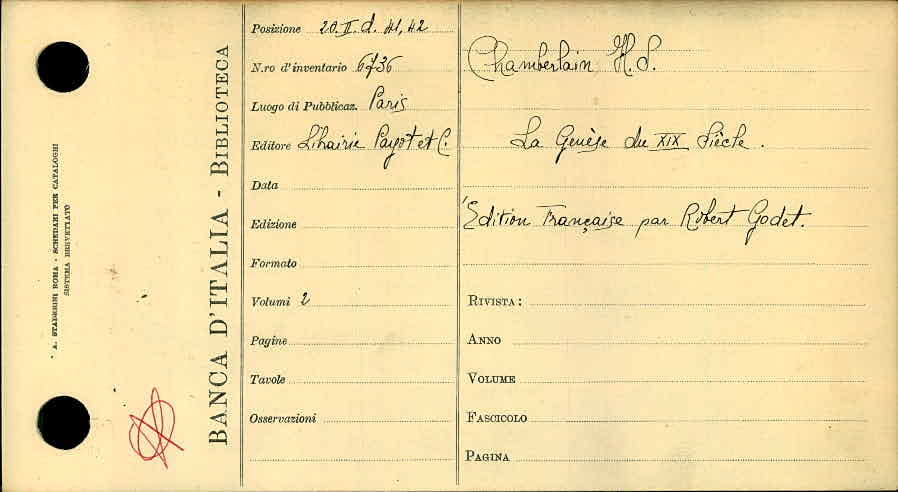 A. STADERINI ROMA - SCHEDARI PER CATALOGHI
SISTEMA BREVETTATO
BANCA D'ITALIA - BIBLIOTECA
Posizione 20.II.d. 41, 42
N.ro d'inventario 6736
Luogo di Pubblicaz. Paris
Editore Librairie Payot et C.
Data
Edizione
Formato
Volumi 2
Pagine
Tavole
Osservazioni
Chamberlain H. S.
La Genèse du XIX Siècle.
Edition Française par Robert Godet.
RIVISTA:
ANNO
VOLUME
FASCICOLO
PAGINA